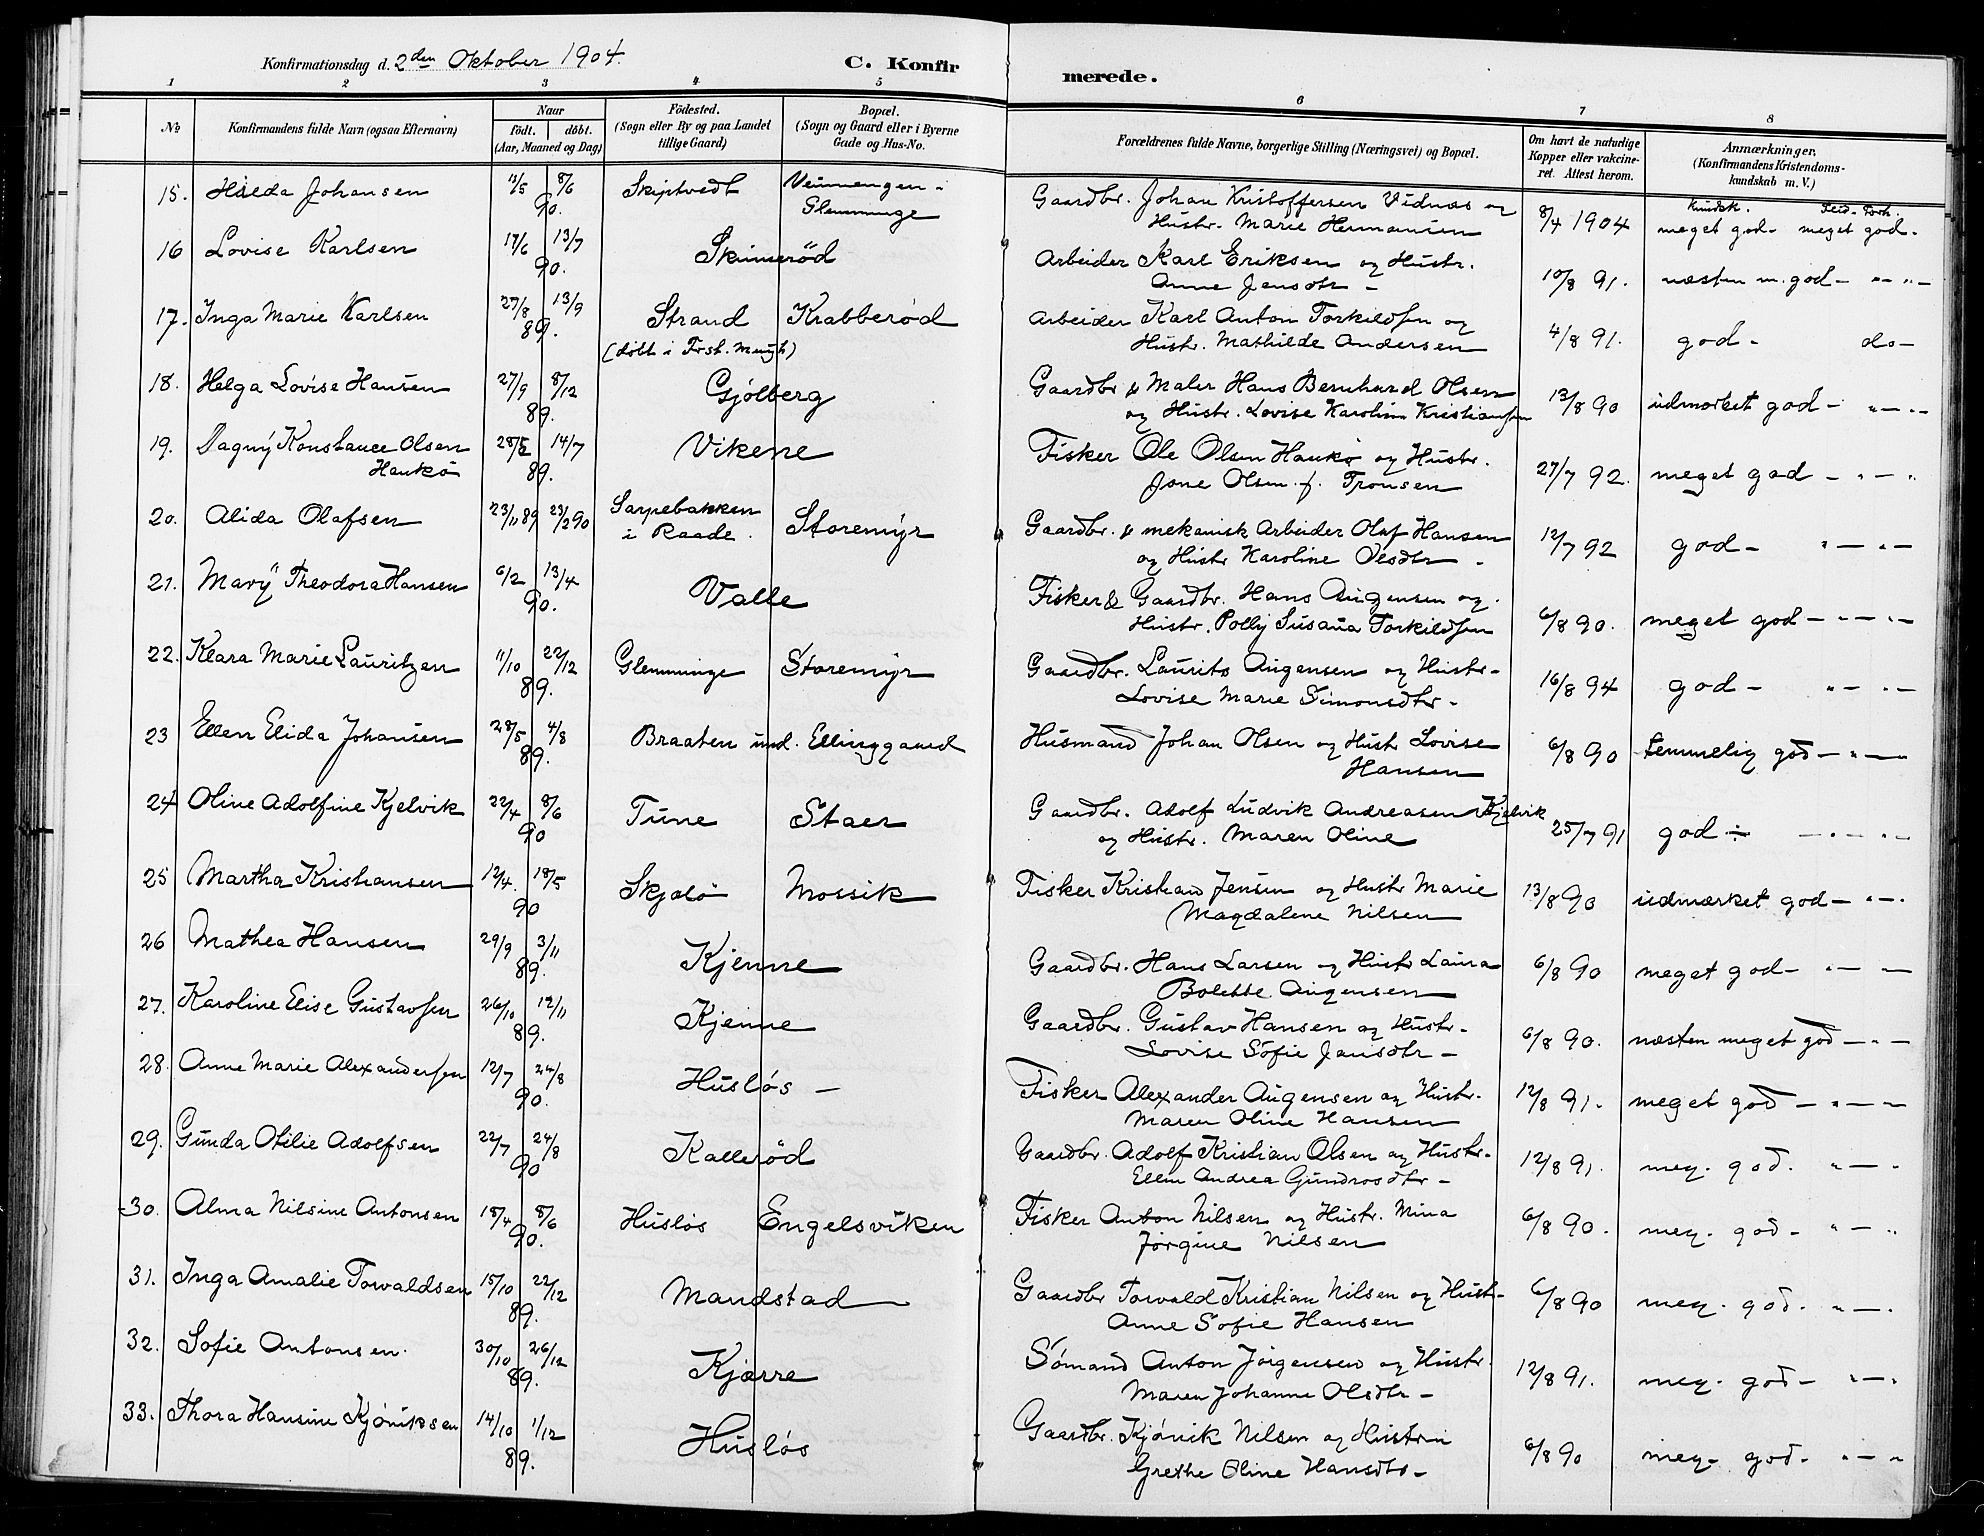 Konfirmationsdag d. 2den Oktober 1904.
C. Konfirmerede.
1 2 3 4 5 6 7 8
No
Konfirmandens fulde Navn (ogsaa Efternavn)
Naar
födt. döbt.
(Aar, Maaned og Dag)
Födested.
(Sogn eller By og paa Landet
tillige Gaard)
Bopæl.
(Sogn og Gaard eller i Byerne
Gade og Hus-No.
Forældrenes fulde Navne, borgerlige Stilling (Næringsvei) og Bopæl.
Om havt de naturlige
Kopper eller vakcine-
ret. Attest herom.
Anmærkninger,
(Konfirmandens Kristendoms-
kundskab m. V.)
15. Hilda Johansen 13/5 8/6 90. Skiptvedt Veumengen i Glemminge Gaardbr. Johan Kristoffersen Vidnæs og
Hustr. Marie Hermansen 8/4 1904 Kundsk. meget god - Flid. Forh. meget god.
16 Lovise Karlsen 17/6 13/7 90. Skinnerød Arbeider Karl Eriksen og Hustr.
Anne Jensdtr - 10/8 91. næsten m. god - " - " -
17. Inga Marie Karlsen 27/8 13/9 89. Strand Krabberød Arbeider Karl Anton Torkildsen og
(döbt i Frst. Menigh) Hustr. Mathilde Andersen 4/8 91. god - do -
18. Helga Lovise Hansen 27/9 8/12 89. Gjølberg Gaardbr & Maler Hans Bernhard Olsen
og Hustr. Lovise Karolin Kristiansen 13/8 90 udmærket god - " - " -
19. Dagny Konstance Olsen 28/5 14/7 89. Vikene Fisker Ole Olsen Hankø og Hustr.
Hankø Jone Olsen f. Tronsen 27/7 92. meget god - " - "
20. Alida Olafsen 23/11 89 23/2 90 Sarpebakken i Raade. Storemyr Gaardbr. & mekanisk Arbeider Oluf Hansen
og Hustr Karoline Olsdtr - 12/7 92 god - " - " -
21. Mary Theodora Hansen 6/2 13/4 90. Valle Fisker & Gaardbr. Hans Augensen og
Hustr. Polly Susana Torkildsen 6/8 90. meget god - " - " -
22. Klara Marie Lauritzen 11/10 22/12 89. Glemminge Storemyr Gaardbr. Laurits Augensen og Hustr -
Lovise Marie Simonsdtr - 16/8 94 god - " - " -
23 Ellen Elida Johansen 28/5 4/8 89. Braaten und. Ellinggaard Husmand Johan Olsen og Hustr Lovise
Hansen 6/8 90 temmelig god - " - "
24 Oline Adolfine Kjelvik 22/4 8/6 90 Tune Staer Gaardbr. Adolf Ludvik Andreasen Kjelvik
og Hustr. Maren Oline 25/7 91 god ÷ - " - " -
25 Martha Kristiansen 12/4. 18/5 90 Skjælø Mossik Fisker Kristian Jensen og Hustr Marie
Magdalene Nilsen 13/8 90 udmærket god - " - .
26 Mathea Hansen 29/9 3/11 89. Kjenne Gaardbr. Hans Larsen og Hustr Laura
Bolette Augensen 6/8 90 meget god - " - "
27. Karoline Elise Gustavsen 26/10 12/11 89. Kjenne Gaardbr. Gustav Hansen og Hustr -
Lovise Sofie Jansdtr - 6/8 90. næsten meget god - " -
28. Anne Marie Alexandersen 12/7 24/8 90. Husløs - Fisker Alexander Augensen og Hustr.
Maren Oline Hansen 12/8 91. meget god - " - "
29. Gunda Otilie Adolfsen 22/7 24/8 90 Kallerød Gaardbr. Adolf Kristian Olsen og Hustr.
Ellen Andrea Gundrosdtr - 12/8 91. meg. god. " - .
30. Alma Nilsine Antonsen 18/4 8/6 90. Husløs Engelsviken Fisker Anton Nilsen og Hustr. Mina
Jørgine Nilsen 6/8 90. meg. god - " - "
31. Inga Amalie Torvaldsen 15/10 22/12 89. Mandstad Gaardbr Torvald Kristian Nilsen og Hustr -
Anne Sofie Hansen 6/8 90 meg. god. " - .
32. Sofie Antonsen. 30/10 26/12 89. Kjærre Sømand Anton Jörgensen og Hustr.
Maren Johanne Olsdtr - 12/8 91. meg. god - " - "
33. Thora Hansine Kjøniksen 14/10 1/12 89. Husløs Gaardbr. Kjønik Nilsen og Hustru
Grethe Oline Hansdtr - 6/8 90 meg. god - " - "